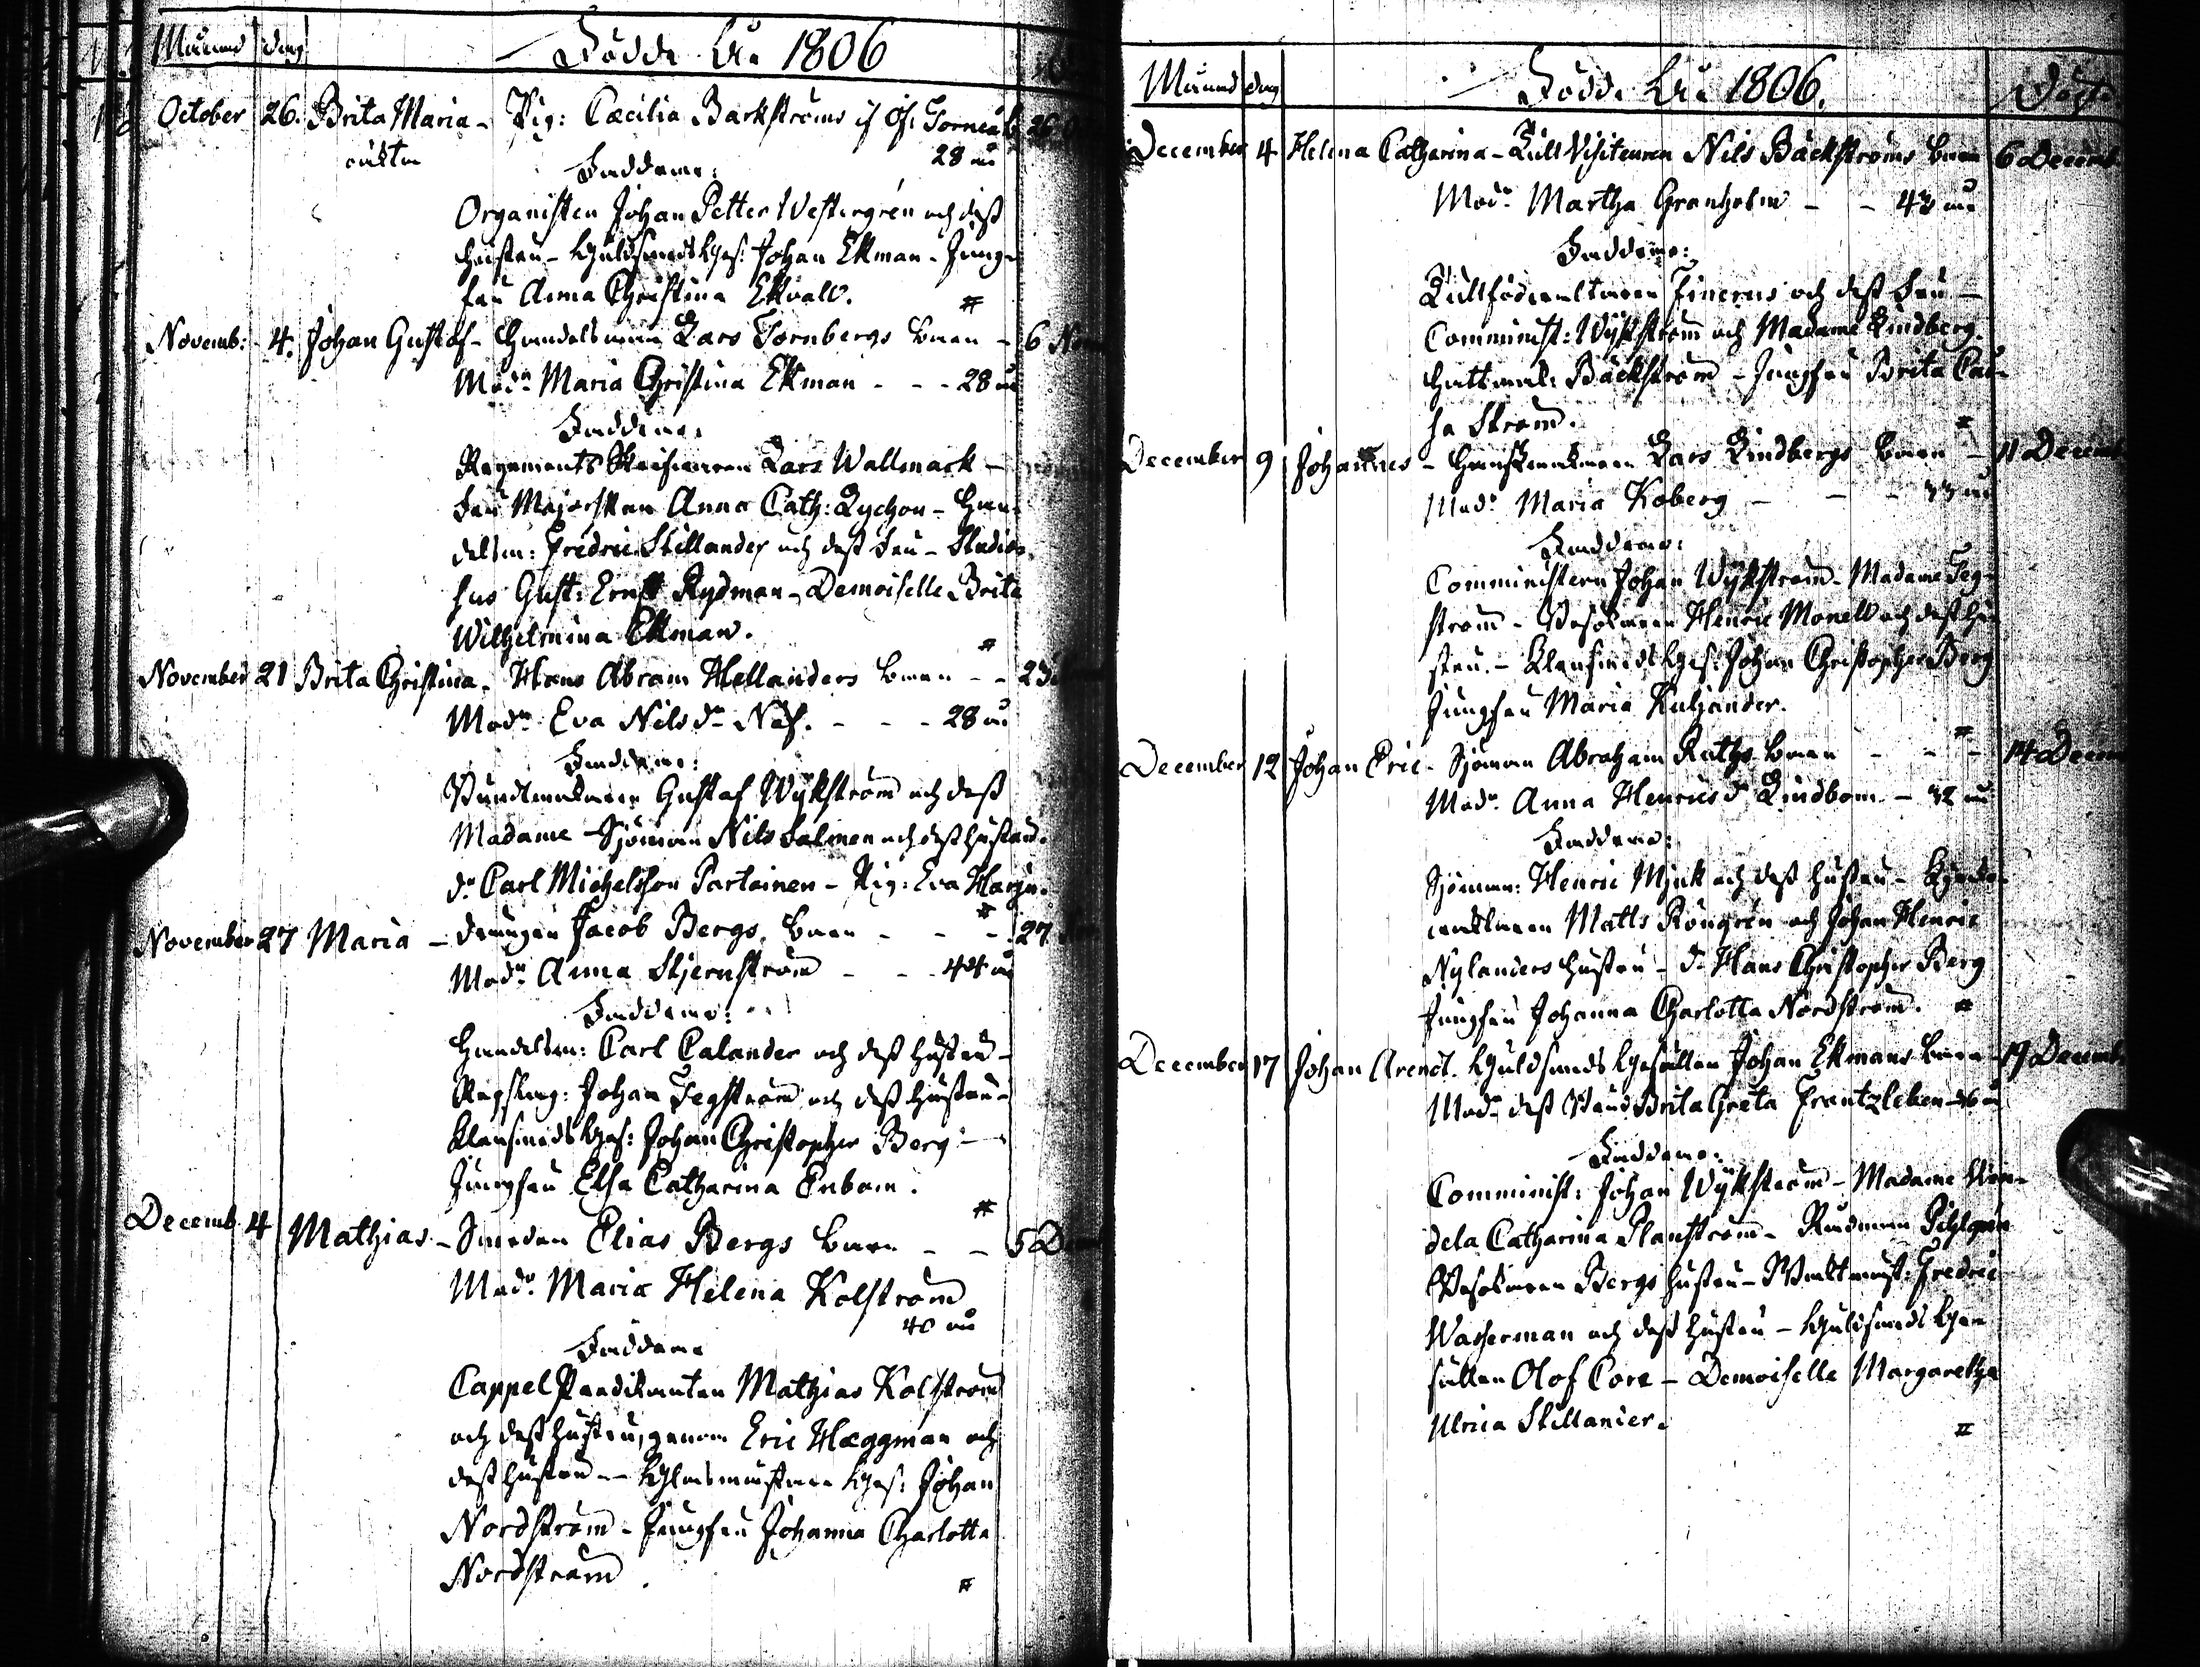 Månad dag Födde År 1806
October 26. Brita Maria - Pig: Cæcilia Backströms if Öf: Torneå b. 26
oäkta 28 år
Faddrarne:
Organisten Johan Petter Westergren och dess
hustru - Guldsmeds Ges: Johan Ekman - Jung-
fru Anna Christina Ekvall. #
Novemb: 4. Johan Gustaf - Handelsman Lars Tornbergs barn - 6 Nov
Modr Maria Christina Ekman - - - 28 år
Faddrarne:
Regements Skrifvaren Lars Wallmark -
Fru Majorskan Anna Cath: Lychou - Han-
delsm: Fredric Stillander och dess Fru - Studio-
sus Gust: Ernst Rydman - Demoiselle Brita
Wilhelmina Ekman. #
November 21 Brita Christina - Hans Abram Hellanders barn - - 23
Modr Eva Nils dr Näf. - - - 28 år
Faddrarne:
Gustaf Wykström och dess
Madame - Sjöman Nils Salmen och dess hustru.
dr Carl Michelsson Partainen - Pig: Eva Harju. #
November 27 Maria - Drängen Jacob Bergs barn - - - 27
Modr Anna Stjernström - - - 44 år
Faddrarne:
Handelsm: Carl Calander och dess hustru -
Johan Tegström och dess hustru -
Klensmeds Ges: Johan Christopher Berg -
Jungfru Elsa Catharina Enbom. #
Decemb. 4 Mathias - Smeden Elias Bergs barn - - 5 D
Modr Maria Helena Kolström
40 år
Faddrarne
Cappel Predikanten Mathias Kolström
och dess hustru, genom Eric Hæggman och
dess hustru - Glasmästare Ges: Johan
Nordström - Jungfru Johanna Charlotta
Nordström. #
Månad dag Födde År 1806. Döpte
December 4 Helena Catharina - Tull Visiteuren Nils Bäckströms barn 6 Decemb
Modr Martha Granholm - - 43 år
Faddrarne:
Tullförvaltaren Finerus och dess Fru -
Comminist: Wykström och Madame Lindberg.
Hattmak: Bäckström - Jungfru Brita Cai-
sa Ström. #
December 9 Johannes - Handskmakaren Lars Lindbergs barn - 11 Decemb
Modr Maria Koberg - - - 33 år
Faddrarne:
Comministern Johan Wykström - Madame Teg-
ström - Henric Monell och dess hu-
stru - Klensmeds Ges: Johan Christopher Berg
Jungfru Maria Kuljander. #
December 12 Johan Eric - Sjöman Abraham Raths barn - - - 14 Decem
Modr Anna Henrics dr Lindbom - 32 år
Faddrarne:
Sjöman: Henric Mjuk och dess hustru -
Matts Röngren och Johan Henric
Nylanders hustru - dr Hans Christopher Berg
Jungfru Johanna Charlotta Nordström. #
December 17 Johan Arendt. Guldsmeds Gesällen Johan Ekmans barn - 19 Decemb
Modr dess Brita Greta Frantzleben - 26 år
Faddrarne:
Comminist: Johan Wykström - Madame Wen-
dela Catharina Planström - Rådman Pihlgren
Bergs hustru - Fredric
Wasserman och dess hustru - Guldsmeds Ge-
sällen Olof Core - Demoiselle Margaretha
Ulrica Stillanier. #